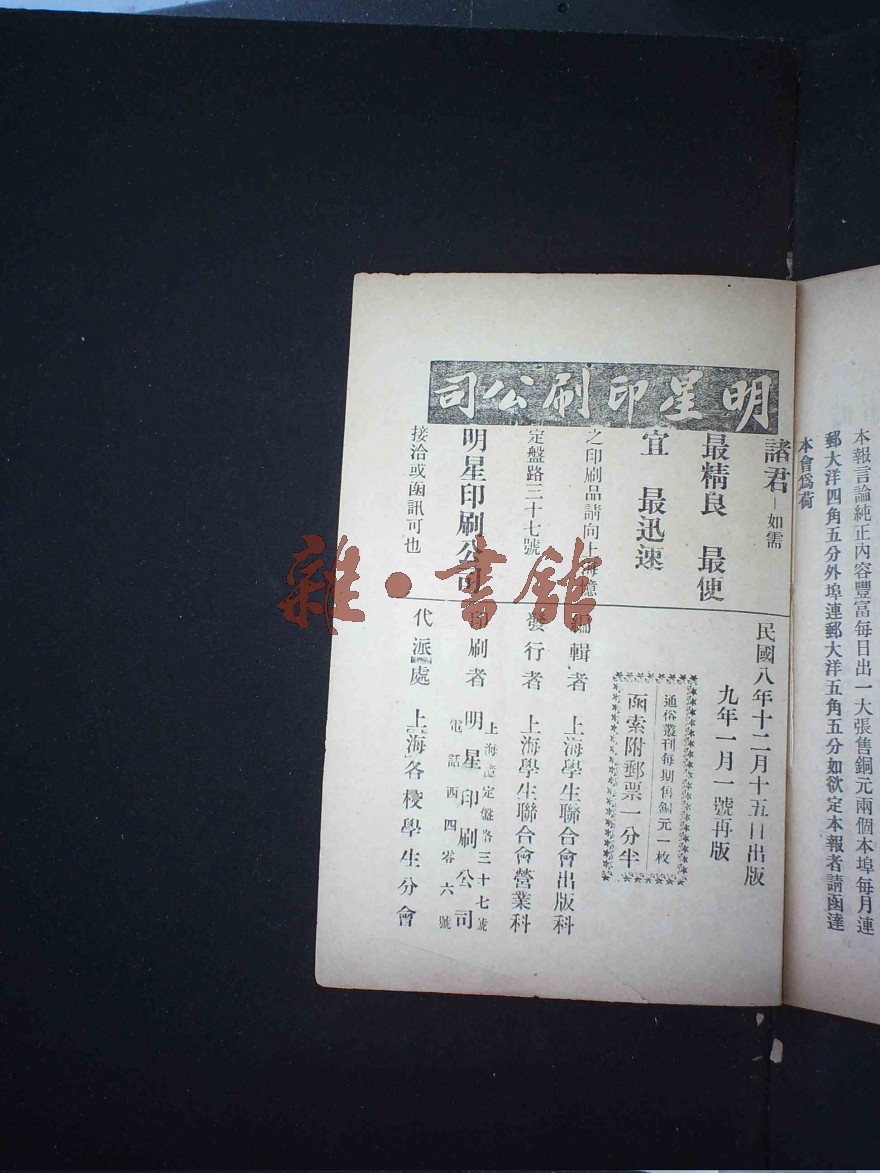 本報言論純正內容豐富每日出一大張售銅元兩個本埠每月連
郵大洋四角五分外埠連郵大洋五角五分如欲定本報者請函達
本會爲荷
明星印刷公司
諸君—如需
最精良　最便
宜　最迅速
之印刷品請向上海憶
定盤路三十七號
明星印刷公司
接洽或函訊可也
民國八年十二月十五日出版
九年一月一號再版
通俗叢刊每期售銅元一枚
函索附郵票一分半
編輯者　上海學生聯合會出版科
發行者　上海學生聯合會營業科
印刷者　明星印刷公司
上海憶定盤路三十七號
電話西四零六號
代派處　上海各校學生分會
雜·書館